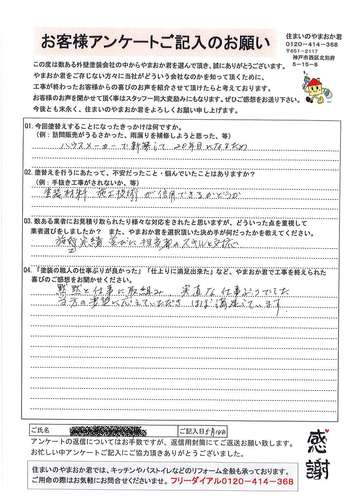 お客様アンケートご記入のお願い
住まいのやまおか君
0120-414-368
〒651-2117
神戸市西区北別府
5-15-8
この度は数ある外壁塗装会社の中からやまおか君を選んで頂き、誠にありがとうございます。
やまおか君をご存じない方々に当社がどういう会社なのかを知って頂くために、
工事が終わったお客様からの喜びのお声を紹介させて頂けたらと考えております。
お客様のお声を聞かせて頂く事はスタッフ一同大変励みにもなります。ぜひご感想をお送り下さい。
今後とも末永く、住まいのやまおか君をよろしくお願い申し上げます。
Q1. 今回塗替えすることになったきっかけは何ですか。
(例:訪問販売がうるさかった、雨漏りを補修しようと思った、等)
ハウスメーカーで新築して 20年目になるため
Q2. 塗替えを行うにあたって、不安だったこと・個んでいたことはありますか?
(例:手抜き工事がされないか、等)
塗装材料 施工技術が信用できるかどうか
Q3. 数ある業者にお見積り取られたり様々な対応をされたと思いますが、どういった点を重視して
業者選びをしましたか? また、やまおか君を選択頂いた決め手が何だったかを教えてください。
施工実績 並びに担当者のスキルと
Q4. 「塗装の職人の仕事ぶりが良かった」「仕上りに満足出来た」など、やまおか君で工事を終えられた
喜びのご感想をお聞かせください。
黙黙と仕事に取組み、実直な仕事ぶりでした
当方の要望に応えていただき ほぼ満足しています
ご氏名
ご記入日 5月14日
アンケートの返信についてはお手数ですが、返信用封筒にてご返送お願い致します。
お忙しい中アンケートにご協力頂きありがとうございました。
感謝
住まいのやまおか君では、キッチンやバストイレなどのリフォーム全般も承っております。
ご用命の際はお気軽にお問合せくださいませ。フリーダイアル0120-414-368